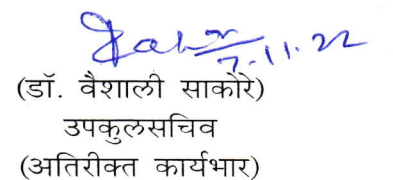 7.11.22
(डॉ. वैशाली साकोरे)
उपकुलसचिव
(अतिरीक्त कार्यभार)